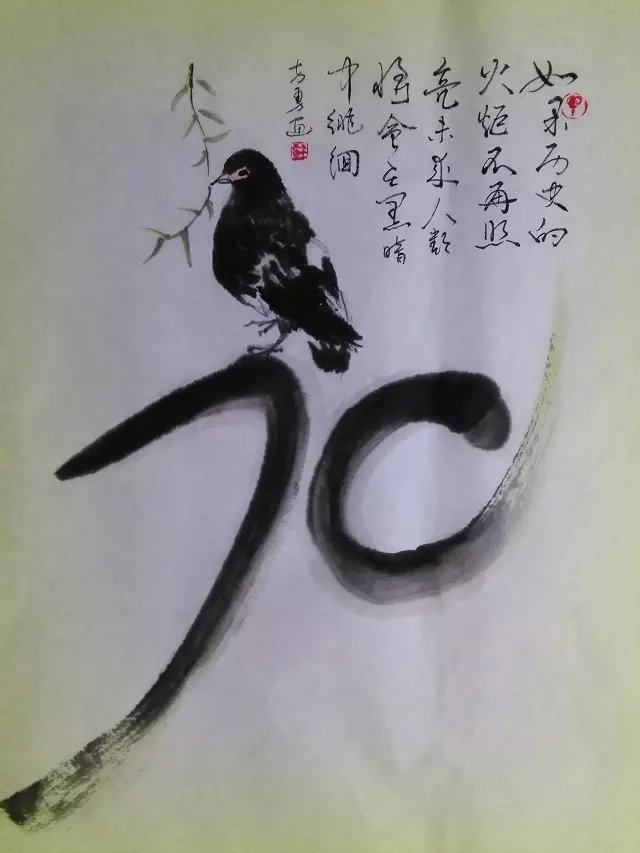 如果历史的
火炬不再照
亮未来人类
将会在黑暗
中徘徊
勇画
70